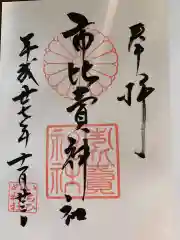 奉拝
市比賣神社
平成廿七年十一月廿二日